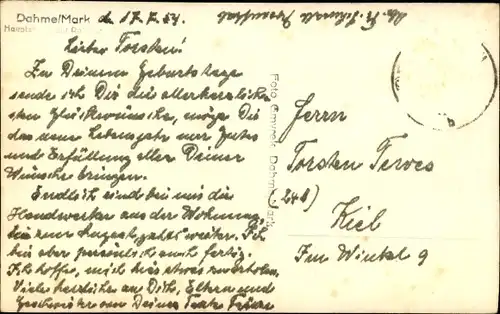 Dahme/Mark de 17.7.54.
Lieber Torsten!
Zu Deinem Geburtstage
sende ich Dir die allerherzlich-
sten Glückwünsche, möge Dir
das neue Lebensjahr nur Gutes
und Erfüllung aller Deiner
Wünsche bringen.
Endlich sind bei mir die
Handwerker aus der Wohnung,
weiter. Ich
bin aber persönlich auch fertig.
Ich hoffe, mich hier etwas zu erholen.
Viele herzliche an Dich, Eltern und
Geschwister von Deiner Tante
Foto Dahme/Mark
Herrn
Torsten Terves
(24b)
Kiel
Im Winkel 9